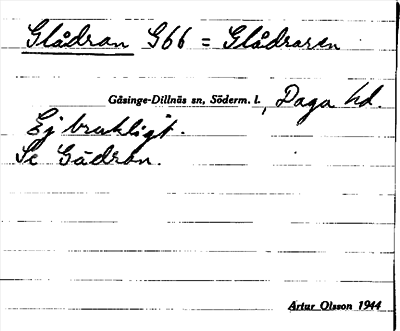 Glådran G66 = Glådraren
Gåsinge-Dillnäs sn, Söderm. l., Daga hd.
Ej brukligt.
Se Gådran.
Artur Olsson 1944